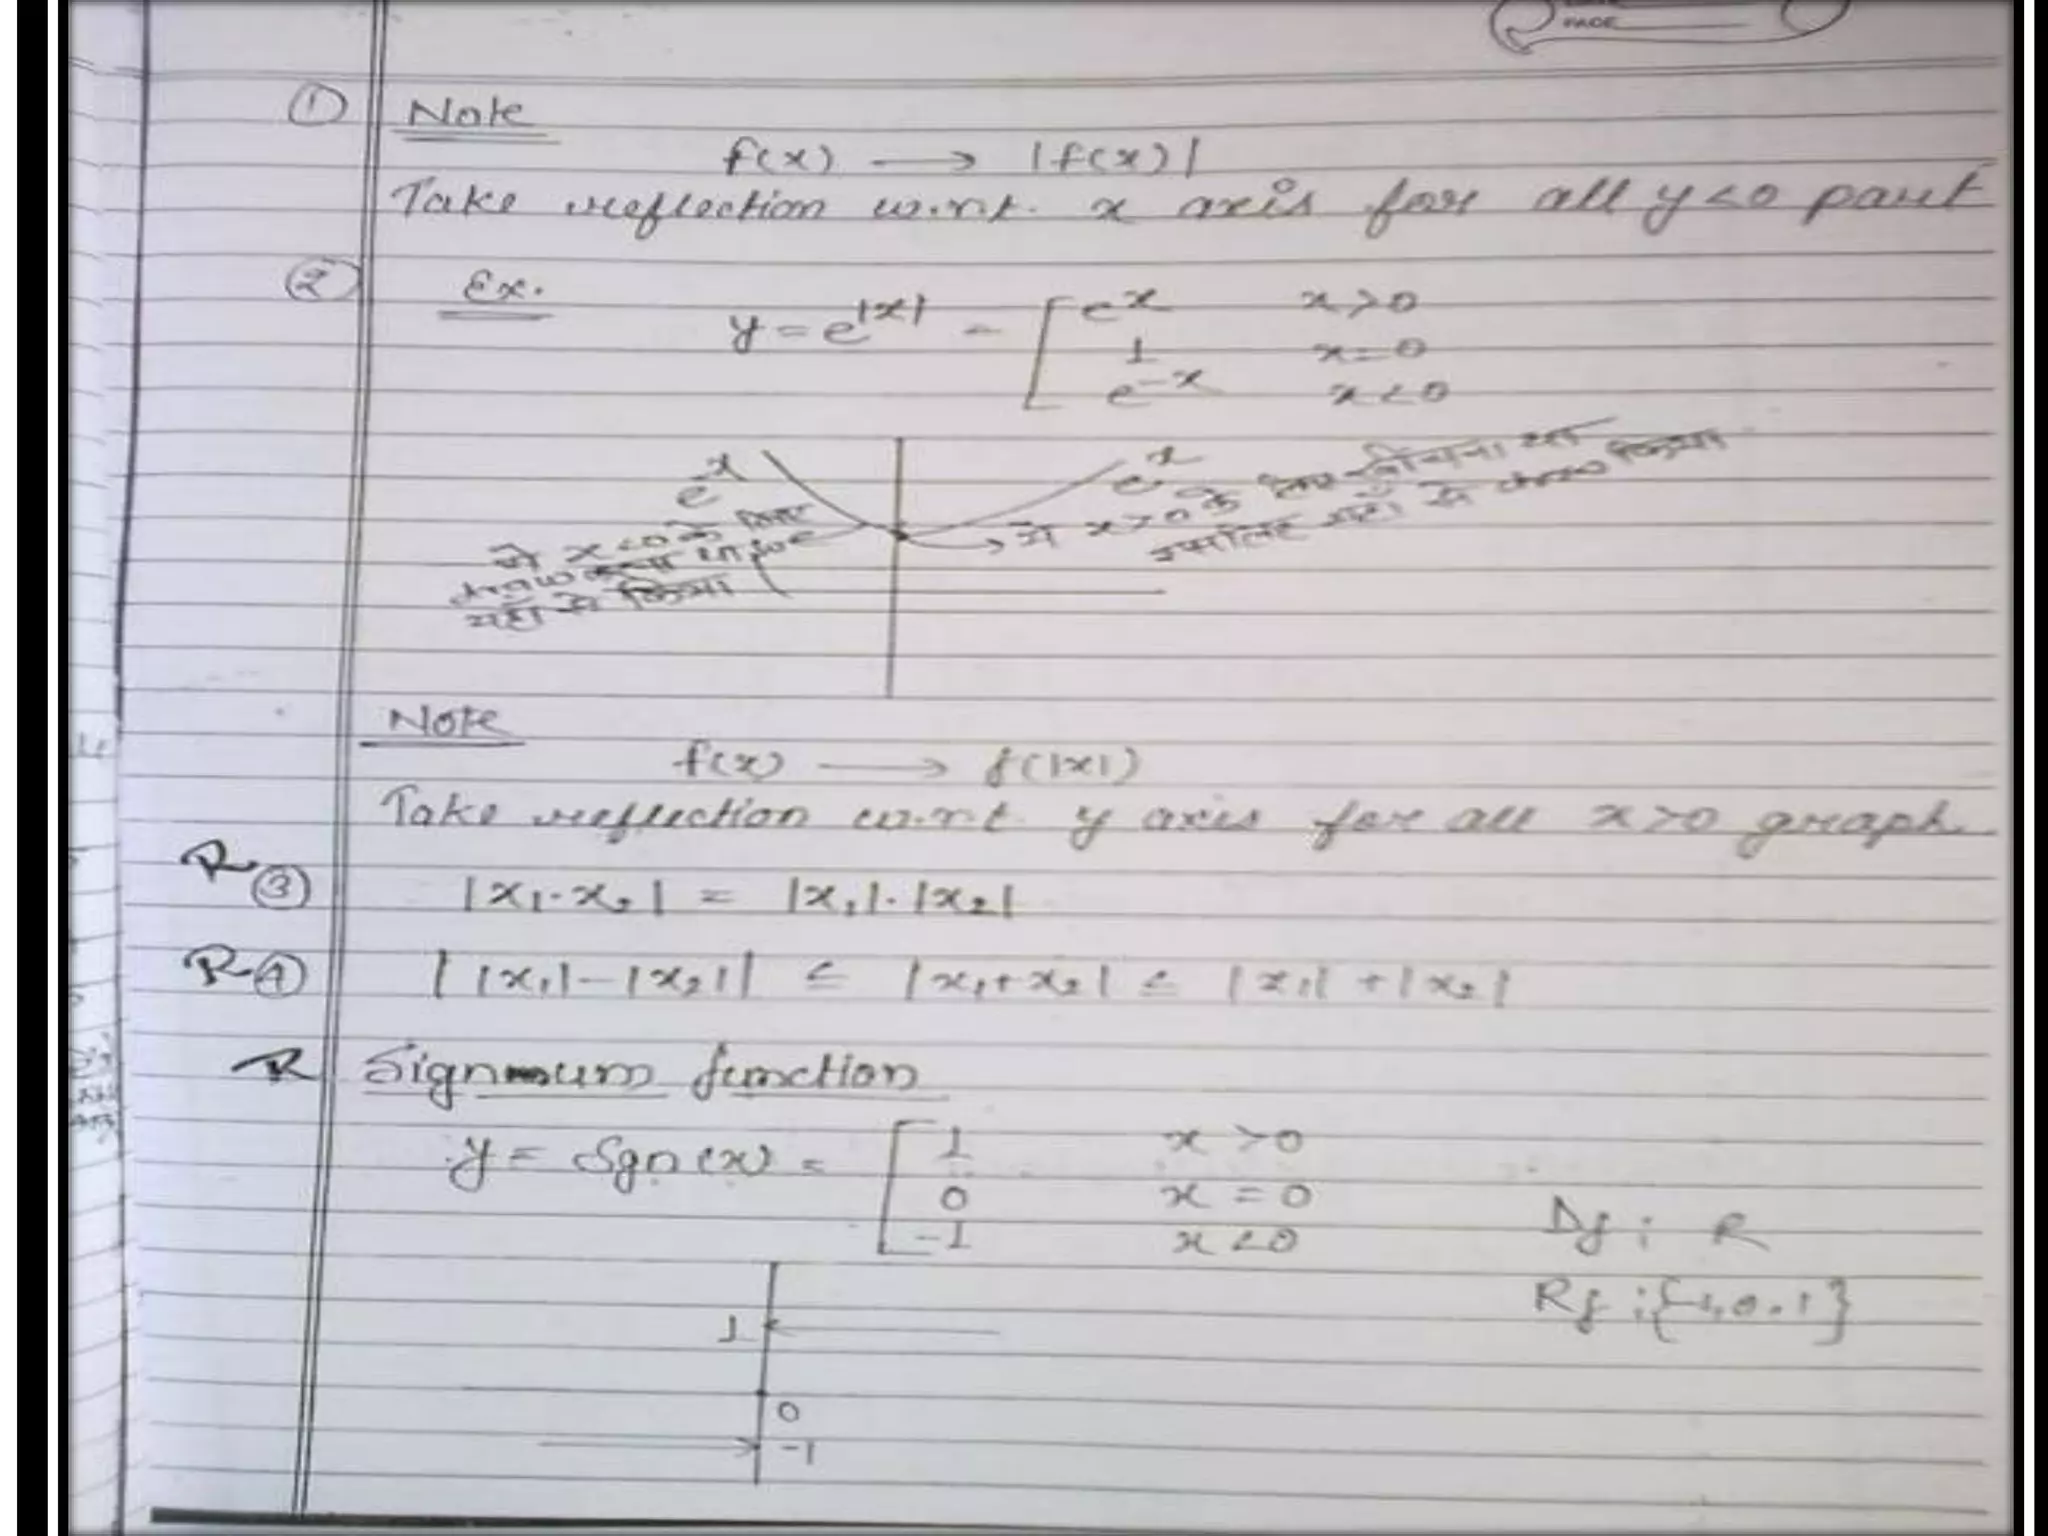 PAGE
① Note
f(x) → |f(x)|
Take reflection w.r.t. x axis for all y<0 part
② Ex.
y = e^|x| = [ e^x x>0
1 x=0
e^-x x<0
e^-x
e^x
ये x<0 के लिए
draw करना था, we
यहाँ से किया
→ ये x>0 के लिए खींचना था
इसलिए यहाँ से draw किया
Note
f(x) → f(|x|)
Take reflection w.r.t. y axis for all x>0 graph
R ③ |x₁·x₂| = |x₁|·|x₂|
R ④ ||x₁|-|x₂|| ≤ |x₁+x₂| ≤ |x₁|+|x₂|
R Signum function
y = Sgn(x) = [ 1 x>0
0 x=0
-1 x<0
Df : R
Rf : {-1,0,1}
1
0
-1